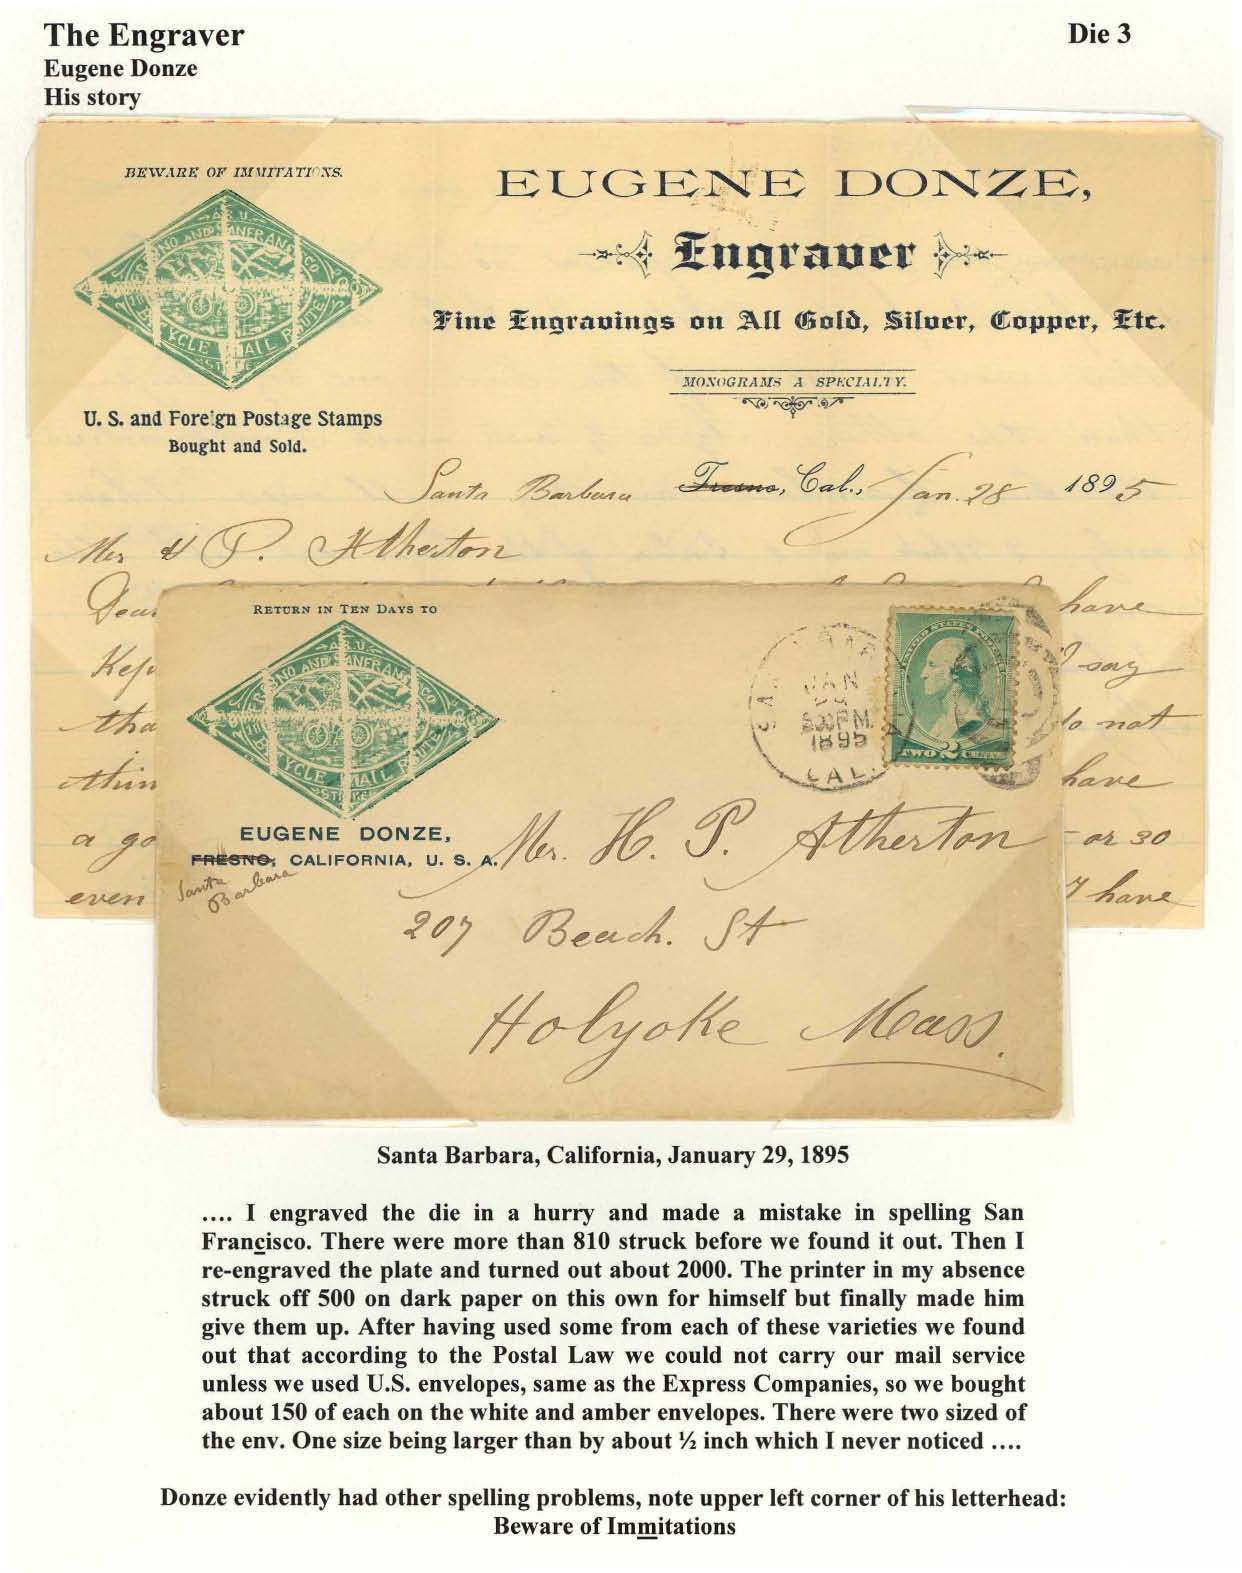 The Engraver
Die 3
Eugene Donze
His story
BEWARE OF IMMITATIONS.
EUGENE DONZE,
Engraver
Fine Engravings on All Gold, Silver, Copper, Etc.
MONOGRAMS A SPECIALTY.
A.R.U.
FRESNO AND SANFRANSCO
BICYCLE MAIL ROUTE
STRIKE
U. S. and Foreign Postage Stamps
Bought and Sold.
Santa Barbara Fresno, Cal., Jan. 28 1895
Mr H P. Atherton
Dear have
Kep I say
tha do not
thin have
a go or 30
even I have
RETURN IN TEN DAYS TO
A.R.U.
FRESNO AND SANFRANSCO
BICYCLE MAIL ROUTE
STRIKE
EUGENE DONZE,
FRESNO, CALIFORNIA, U. S. A.
Santa
Barbara
JAN
1895
CAL.
UNITED STATES POSTAGE
TWO 2 CENTS
Mr. H. P. Atherton
207 Beach. St
Holyoke Mass.
Santa Barbara, California, January 29, 1895
…. I engraved the die in a hurry and made a mistake in spelling San
Francisco. There were more than 810 struck before we found it out. Then I
re-engraved the plate and turned out about 2000. The printer in my absence
struck off 500 on dark paper on this own for himself but finally made him
give them up. After having used some from each of these varieties we found
out that according to the Postal Law we could not carry our mail service
unless we used U.S. envelopes, same as the Express Companies, so we bought
about 150 of each on the white and amber envelopes. There were two sized of
the env. One size being larger than by about ½ inch which I never noticed ….
Donze evidently had other spelling problems, note upper left corner of his letterhead:
Beware of Immitations